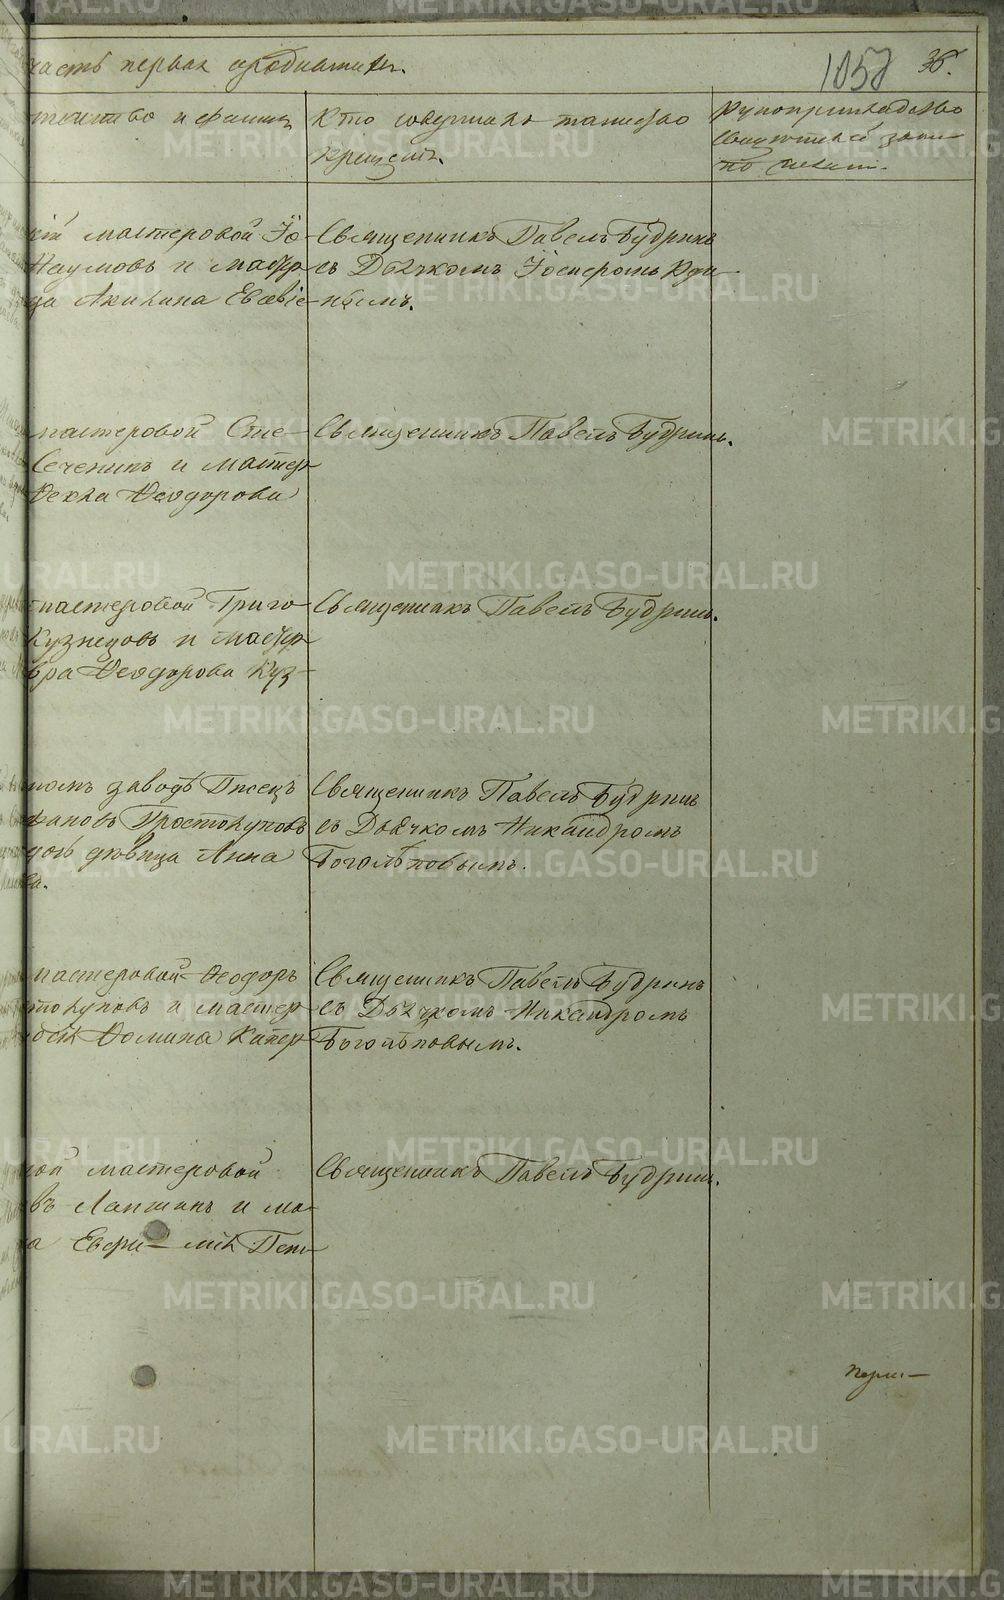 часть первая о родившихся.
1057 36.
отчество и фамил
Кто совершалъ таинство
крещенія.
Рукоприкладство
свидѣтелей запи-
по желан.
кій мастеровой Іо-
Наумовъ и мастер
ца Акилина Евсевіе-
Священникъ Павелъ Будринъ
съ Дьячкомъ Іосифомъ Уди-
нымъ.
мастеровой Сте-
Сеченинъ и мастер-
Ѳекла Ѳеодорова
Священникъ Павелъ Будринъ.
мастеровой Григо-
Кузнецовъ и мастер-
вра Ѳеодорова Куз-
Священникъ Павелъ Будринъ.
номъ заводѣ Писецъ
фановъ Простокуповъ
дов дѣвица Анна
ва.
Священникъ Павелъ Будринъ
съ Дьячкомъ Никандромъ
Боголѣповымъ.
мастеровой Ѳеодоръ
стокуповъ и мастер
Ѳомина
Священникъ Павелъ Будринъ
съ Дьячкомъ Никандромъ
Боголѣповымъ.
ной мастеровой
въ Лапшинъ и ма-
а Евфи- мія Пет-
Священникъ Павелъ Будринъ.
METRIKI.GASO-URAL.RU